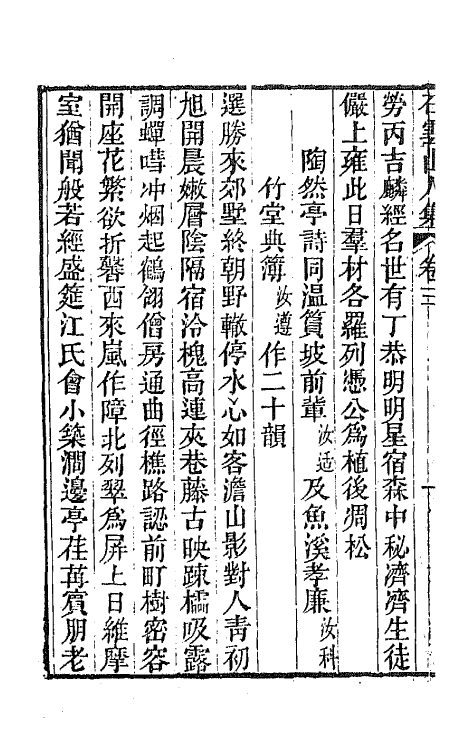 石雲山人集 卷三
勞丙吉麟經名世有丁恭明明星宿森中秘濟濟生徒
儼上雍此日羣材各羅列憑公爲植後凋松
陶然亭詩同溫篔坡前輩汝适及魚溪孝廉汝科
竹堂典簿汝遵作二十韻
選勝來郊墅終朝野轍停水心如客澹山影對人靑初
旭開晨嫩層陰隔宿泠槐高連夾巷藤古映踈櫺吸露
調蟬噆冲烟起鶴翎僧房通曲徑樵路認前町樹密容
開座花繁欲折罄西來嵐作障北列翠爲屏上日維摩
室猶聞般若經盛筵江氏會小築澗邊亭荏苒賓朋老